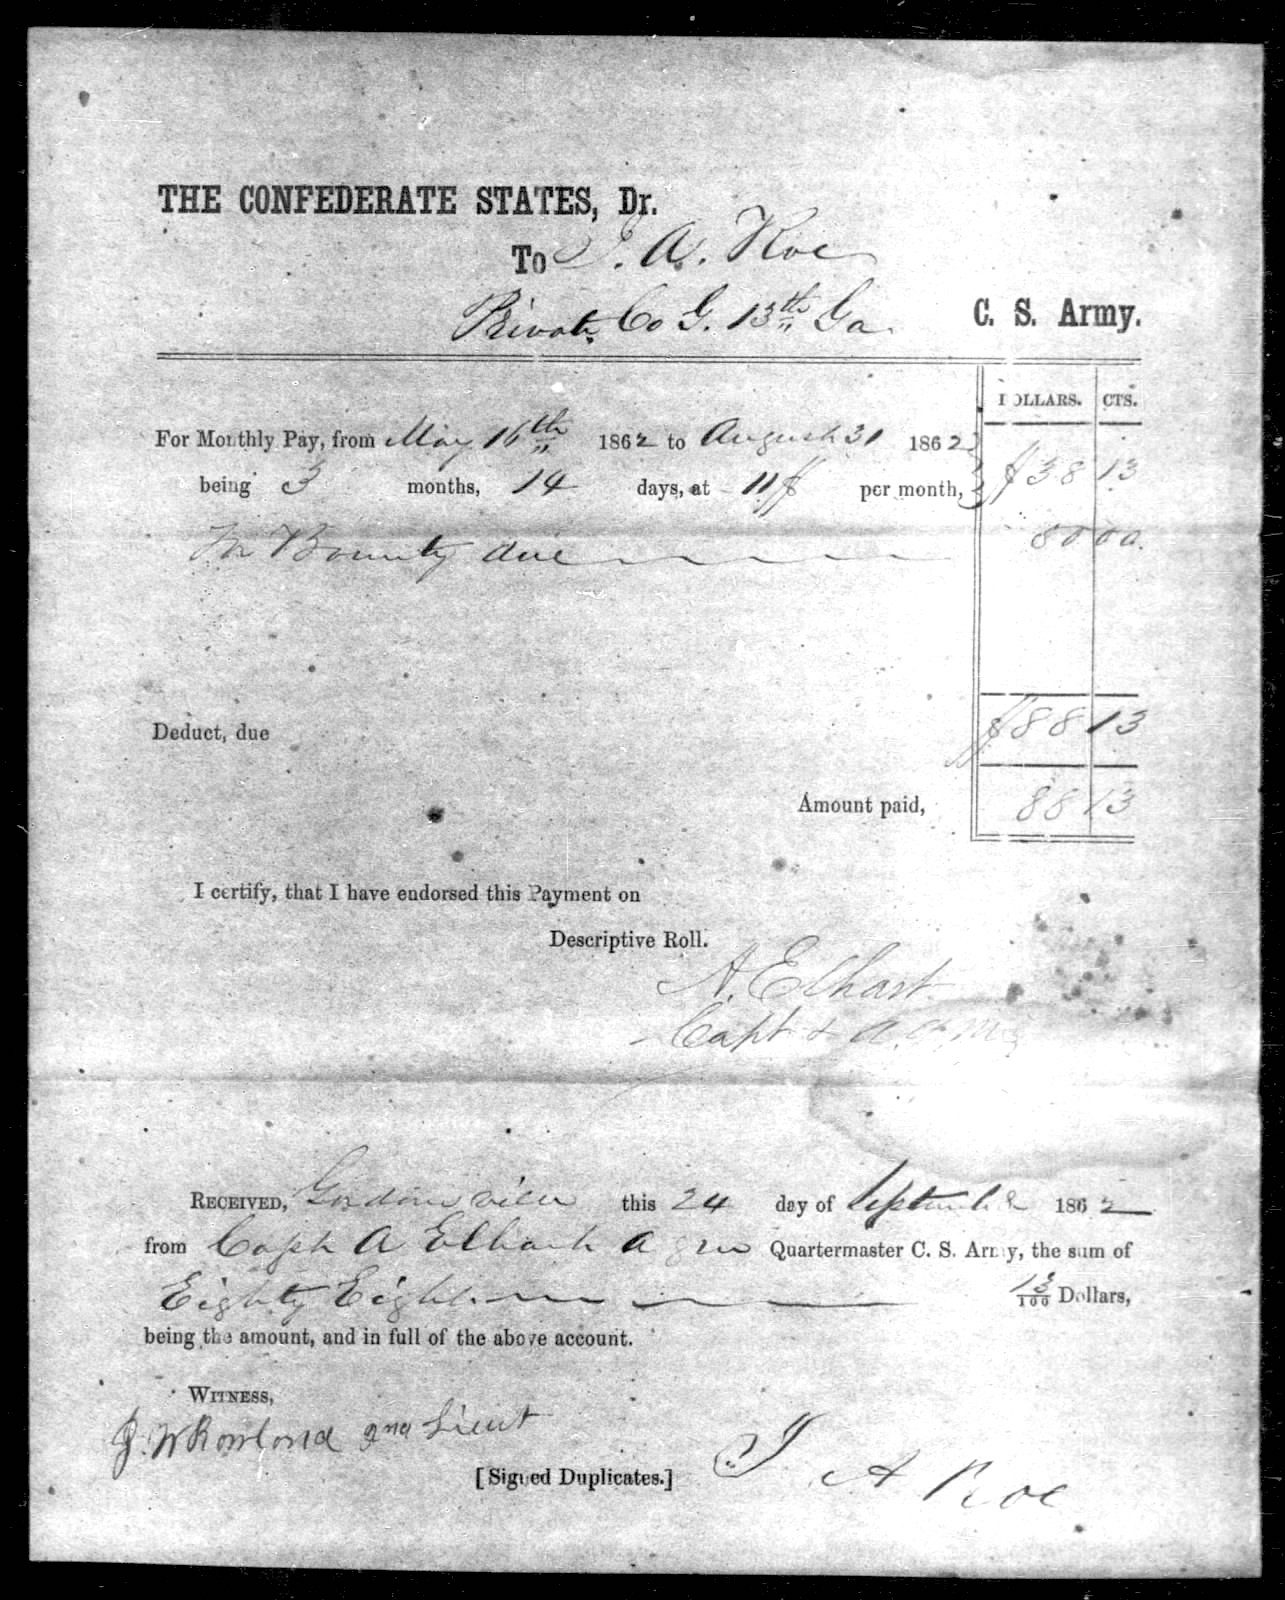 THE CONFEDERATE STATES, Dr.
To J. A. Roe
Private Co G. 13th Ga C. S. Army.
DOLLARS. CTS.
For Monthly Pay, from May 16th 1862 to August 31 1862
being 3 months, 14 days, at 11$ per month, $38 13
For Bounty due 50 00.
Deduct, due $88 13
Amount paid, 88 13
I certify, that I have endorsed this Payment on
Descriptive Roll.
A. Elhart
Capt & A.Q.M.
RECEIVED, Gordonsville this 24 day of September 1862
from Capt A Elhart A Quartermaster C. S. Army, the sum of
Eighty Eight 13/100 Dollars,
being the amount, and in full of the above account.
WITNESS,
J. W Rowland 2nd Lieut
[Signed Duplicates.]
J A Roe